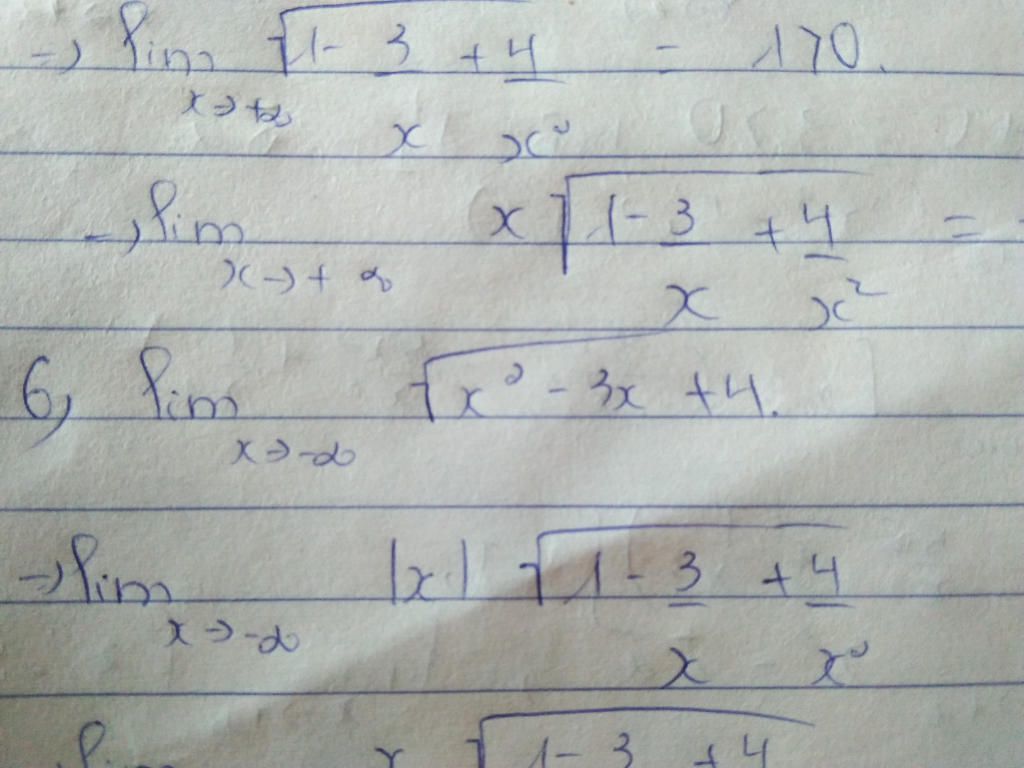 => lim x→+∞ √(1 - 3/x + 4/x²) = 1>0.
→ lim x→+∞ x √(1 - 3/x + 4/x²) =
6, lim x→-∞ √(x² - 3x + 4).
→ lim x→-∞ |x| √(1 - 3/x + 4/x²)
lim x √(1 - 3 + 4